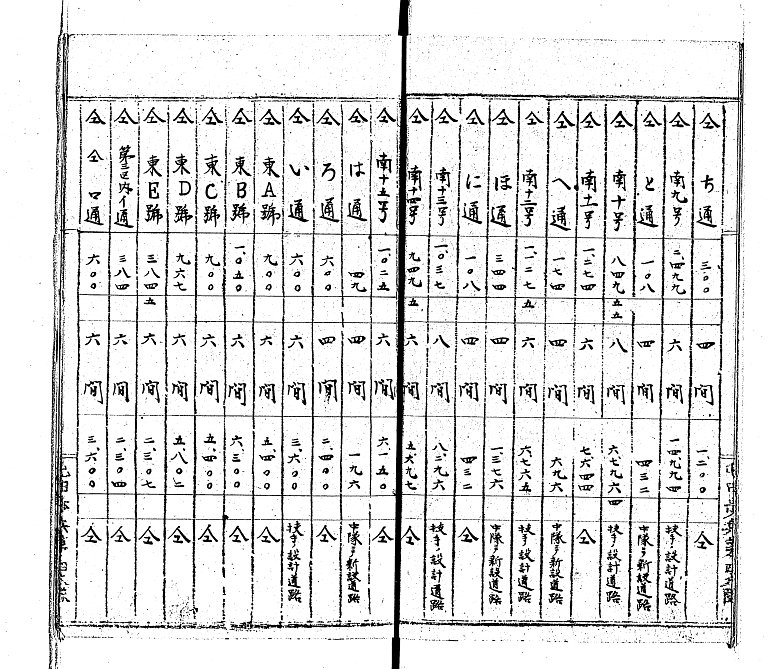 仝 ち通 三〇〇 四間 一二〇〇 仝
仝 南九号 二、四九九 六間 一四九九四 技手ノ設計道路
仝 と通 一〇八 四間 四三二 中隊ヨリ新設道路
仝 南十号 八四九五五 八間 六、七九六四 技手ノ設計道路
仝 南十一号 一、二七四 六間 七、六四四 仝
仝 へ通 一七四 四間 六九六 中隊ヨリ新設道路
仝 南十二号 一、一二七五 六間 六、七六五 技手ノ設計道路
仝 ほ通 三四四 四間 一、三七六 中隊ヨリ新設道路
仝 に通 一〇八 四間 四三二 仝
仝 南十三号 一、〇三七 八間 八、二九六 技手ノ設計道路
仝 南十四号 九四九五 六間 五六九七 仝
仝 南十五号 一、〇二五 六間 六、一五〇 仝
仝 は通 四九 四間 一九六 中隊ヨリ新設道路
仝 ろ通 六〇〇 四間 二、四〇〇 仝
仝 い通 六〇〇 六間 三、六〇〇 技手ノ設計道路
仝 東A號 九〇〇 六間 五、四〇〇 仝
仝 東B號 一、〇五〇 六間 六、三〇〇 仝
仝 東C號 九〇〇 六間 五、四〇〇 仝
仝 東D號 九六七 六間 五、八〇二 仝
仝 東E號 三八四五 六間 二、三〇七 仝
仝 第三区内イ通 三八四 六間 二、三〇四 仝
仝 仝ロ通 六〇〇 六間 三、六〇〇 仝